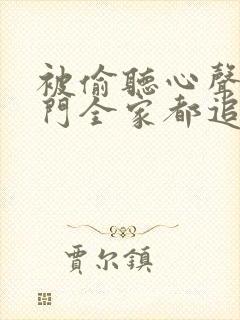 被偷聽心聲
門全家都追
賈尔鎮